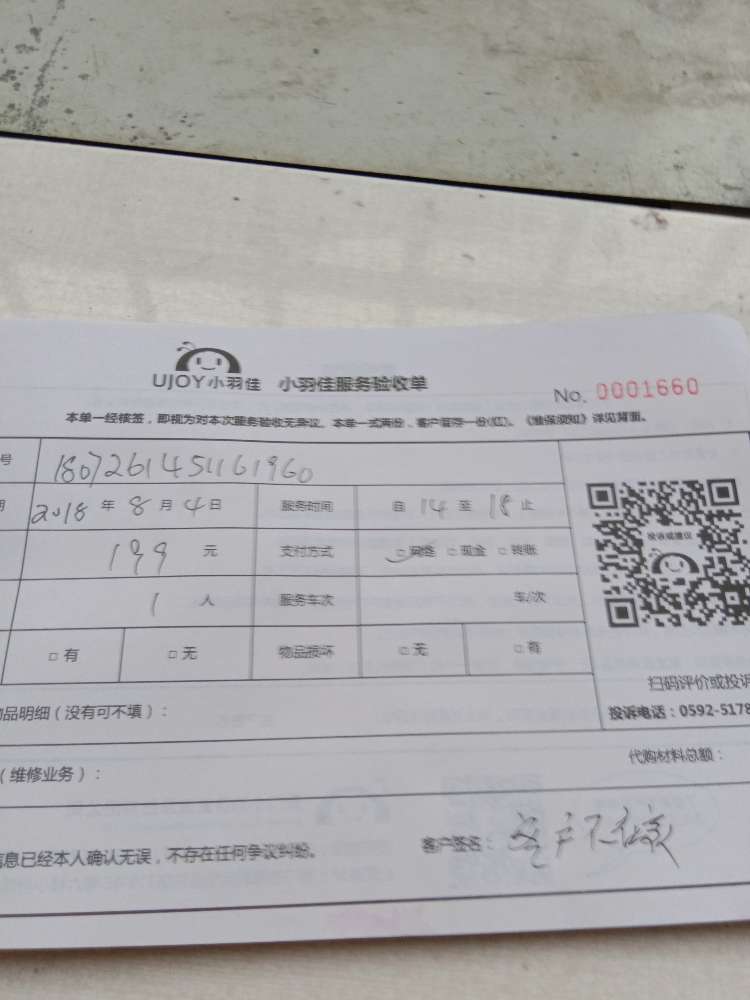 UJOY小羽佳 小羽佳服务验收单
No. 0001660
本单一经核签，即视为对本次服务验收无异议。本单一式两份，客户留存一份(红)。《维保须知》详见背面。
号 1807261451161960
期 2018 年 8 月 4 日 服务时间 自 14 至 18 止
199 元 支付方式 □ 网络 □ 现金 □ 转账
1 人 服务车次 车/次
□ 有 □ 无 物品损坏 □ 无 □ 有
投诉或建议
扫码评价或投诉
物品明细（没有可不填）：
投诉电话：0592-5178
（维修业务）：
代购材料总额：
信息已经本人确认无误，不存在任何争议纠纷。 客户签名： 客户不在家